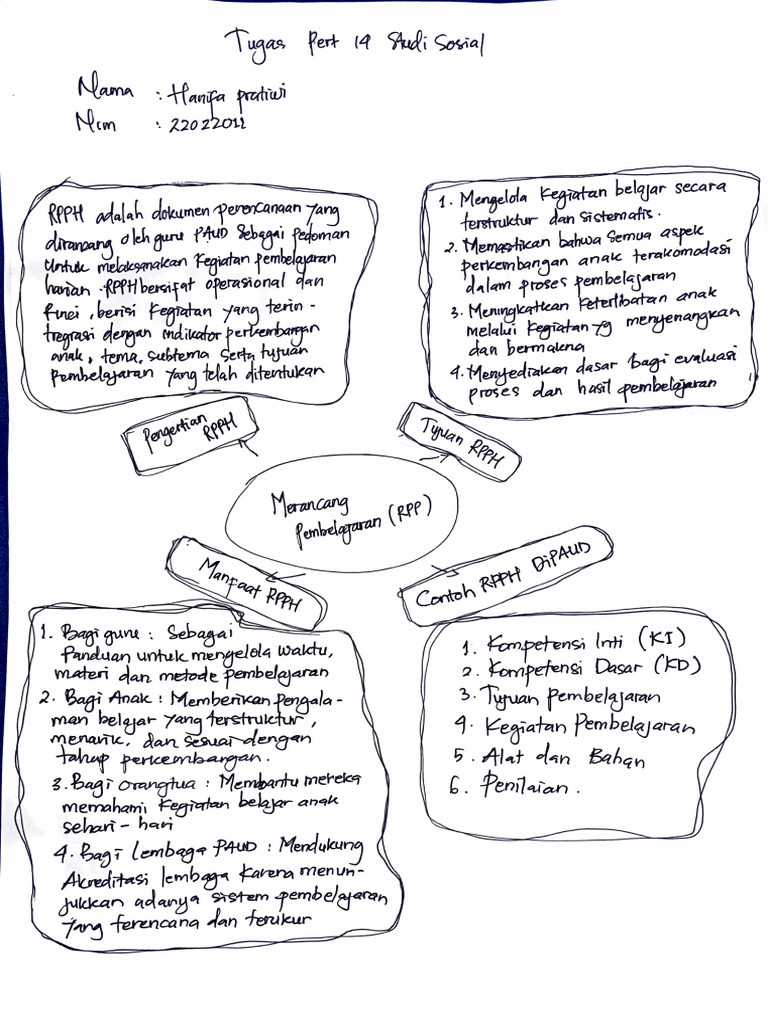 Tugas Pert 14 Studi Sosial
Nama : Hanifa pratiwi
Nim : 22022011
RPPH adalah dokumen perencanaan yang
dirancang oleh guru PAUD Sebagai pedoman
Untuk melaksanakan Kegiatan pembelajaran
harian. RPPH bersifat operasional dan
Rinci, berisi Kegiatan yang terin-
tregrasi dengan indikator perkembangan
anak, tema, subtema serta tujuan
Pembelajaran yang telah ditentukan
Pengertian
RPPH
1. Mengelola Kegiatan belajar secara
terstruktur dan sistematis.
2. Memastikan bahwa semua aspek
perkembangan anak terakomodasi
dalam proses pembelajaran
3. Meningkatkan keterlibatan anak
melalui Kegiatan yg menyenangkan
dan bermakna
4. Menyediakan dasar bagi evaluasi
proses dan hasil pembelajaran
Tujuan RPPH
Merancang
Pembelajaran (RPP)
Manfaat RPPH
1. Bagi guru : Sebagai
Panduan untuk mengelola waktu,
materi dan metode pembelajaran
2. Bagi Anak : Memberikan pengala-
man belajar yang terstruktur,
menarik, dan sesuai dengan
tahap perkembangan.
3. Bagi orangtua : Membantu mereka
memahami Kegiatan belajar anak
sehari-hari
4. Bagi Lembaga PAUD : Mendukung
Akreditasi lembaga Karena menun-
jukkan adanya sistem pembelajaran
yang terencana dan terukur
Contoh RPPH DiPAUD
1. Kompetensi Inti (KI)
2. Kompetensi Dasar (KD)
3. Tujuan Pembelajaran
4. Kegiatan Pembelajaran
5. Alat dan Bahan
6. Penilaian.